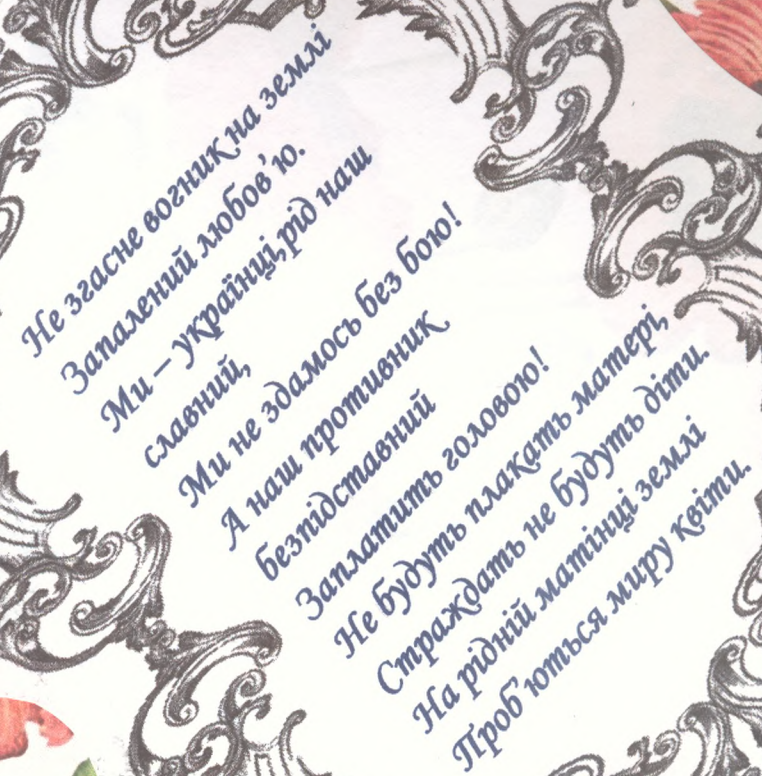 Не згасне вогник на землі
Запалений любов'ю.
Ми – українці, рід наш
славний,
Ми не здамось без бою!
А наш противник
безпідставний
Заплатить головою!
Не будуть плакать матері,
Страждать не будуть діти.
На рідній матінці землі
Проб'ються миру квіти.